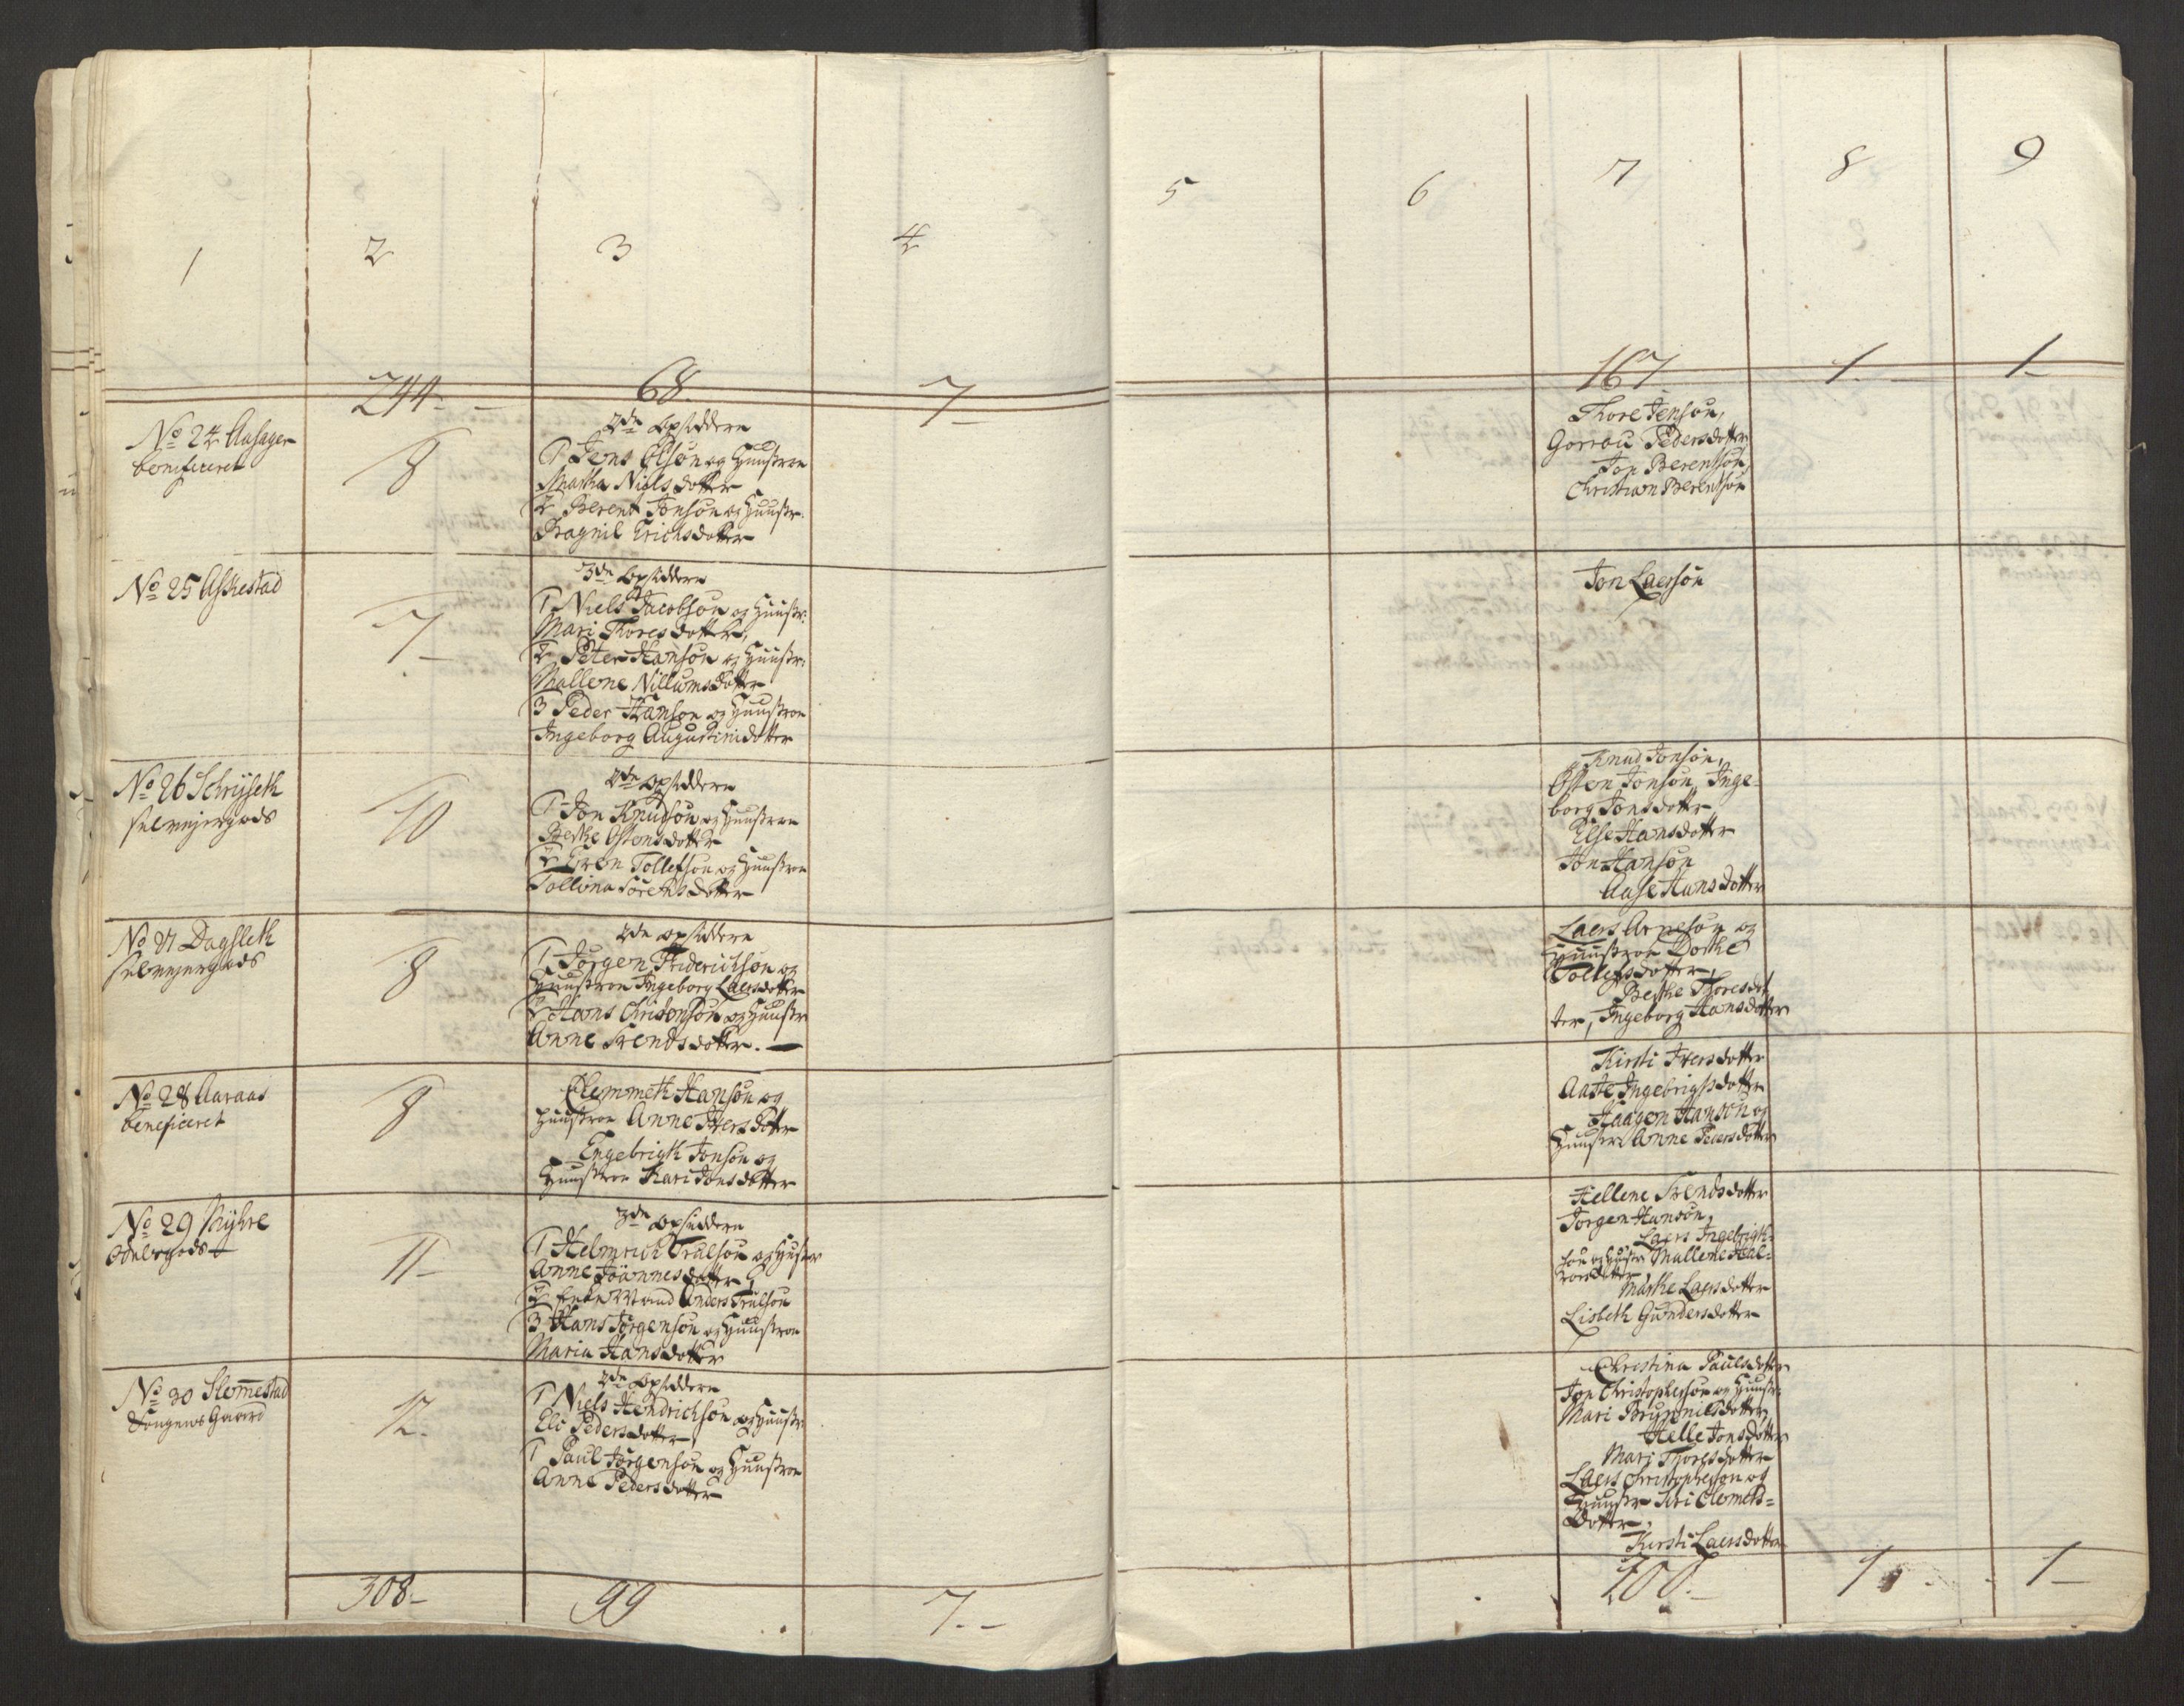 1 2 3 4 5 6 7 8 9
244 68 7 167 1 1
No 24 Aasager
beneficeret
8
2de opsiddere
1 Jens Olsøn og Huustroe
Martha Nielsdotter
2 Berent Jonsøn og Huustr.
Ragnil Erichsdotter
Thore Jensøn,
Pedersdotter
Jon Berentsøn,
Christian Berentsøn
No 25 Askestad
7
3de opsiddere
1 Niels Jacobsøn og Huustr:
Mari Thoresdotter,
2 Peter Hansøn og Huustr:
Mallene Nillumsdotter
3 Peder Hansøn og Huustroe
Ingeborg Augustinidotter
Jon Laersøn
No 26 Schrijseth
selvejergods
10
2de opsiddere
1 Jon Knudsøn og Huustroe
Berthe Ostensdotter
2 Even Tollefsøn og Huustroe
Tollina Sørensdotter
Knud Jonsøn,
Osten Jonsøn, Inge-
borg Jonsdotter
Else Hansdotter
Jon Hansøn
Aase Hansdotter
No 27 Dagsleth
selvejergods
8
2de opsiddere
1 Jørgen Friderichsøn og
Huustroe Ingeborg Laersdotter
2 Hans og Huustr
Anne Svendsdotter.
Laers Arnesøn og
Huustroe Dorthe
Tollefsdotter,
Berthe Thoresdot
ter, Ingeborg Hansdotter
No 28 Aaraas
beneficeret
8
Clemmeth Hansøn og
Huustroe Anne Iversdotter
Engebrigth Jonsøn og
Huustroe Kari Jonsdotter
Kirsti Iversdotter
Aaste Ingebrigtsdotter
Haagen Hansøn og
Huustr: Anne Pedersdotter
No 29 Myhre
Odelsgods
11
3de opsiddere
1 Helmrich Trulsøn og Huustr
Anne Joannesdotter
2 Enke Mand Anders Trulsøn
3 Hans Jørgensøn og Huustroe
Maria Hansdotter
Hellene Svendsdotter
Jørgen Hansøn,
Laers Ingebrigth-
søn og Huustr Mallene Hal-
vorsdotter
Marthe Laersdotter
Lisbeth Gundersdotter
No 30 Slemmestad
Gaard
12.
2de opsiddere
1 Niels Hendrichsøn og Huustr:
Eli Pedersdotter
1 Paul Jørgensøn og Huustroe
Anne Pedersdotter
Christina Paulsdotter
Jon Christophersøn og Huustr:
Mari Brynnilsdotter,
Helle Jonsdotter
Mari Thoresdotter
Laers Christophersøn og
Huustr Siri Clemets-
Dotter.
Kirsti Laersdotter
308 99 7 200. 1 1